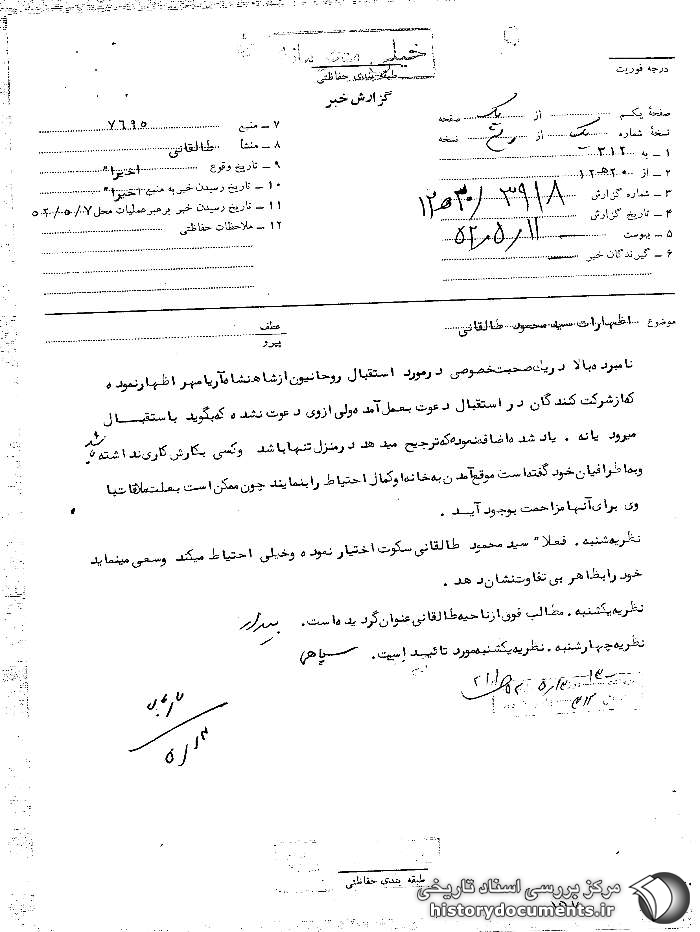 خیلی محرمانه
طبقه بندی حفاظتی
گزارش خبر
درجه فوریت
صفحهٔ یکم از یک صفحه
نسخهٔ شماره یک از نسخه
۱ – به ۳۱۲
۲ – از ۲۰ ه‍ ۱۲
۳ – شماره گزارش ۳۹۱۸ / ۲۰ ه‍ ۱۲
۴ – تاریخ گزارش ۵۲/۵/۱۱
۵ – پیوست
۶ – گیرندگان خبر
۷ – منبع ۷۶۹۵
۸ – منشأ طالقانی
۹ – تاریخ وقوع اخیراً
۱۰ – تاریخ رسیدن خبر به منبع اخیراً
۱۱ – تاریخ رسیدن خبر برهبر عملیات محل ۵۲/۰۵/۰۷
۱۲ – ملاحظات حفاظتی
موضوع اظهارات سید محمود طالقانی
عطف
پیرو
نامبرده بالا در یک صحبت خصوصی در مورد استقبال روحانیون از شاهنشاه آریامهر اظهار نموده
که از شرکت کنندگان در استقبال دعوت بعمل آمده ولی از وی دعوت نشده که بگوید باستقبال
میرود یا نه . یاد شده اضافه نموده که ترجیح میدهد در منزل تنها باشد و کسی بکارش کاری نداشته باشد
وبه اطرافیان خود گفته است موقع آمدن به خانه او کمال احتیاط را بنمایند چون ممکن است بعلت ملاقات با
وی برای آنها مزاحمت بوجود آید .
نظریه شنبه . فعلا" سید محمود طالقانی سکوت اختیار نموده وخیلی احتیاط میکند وسعی مینماید
خود را بظاهر بی تفاوت نشان دهد .
نظریه یکشنبه . مطالب فوق از ناحیه طالقانی عنوان گردیده است . بیدار
نظریه چهارشنبه . نظریه یکشنبه مورد تائید است . سپاهی
۵/۱۳
طبقه بندی حفاظتی
مرکز بررسی اسناد تاریخی
historydocuments.ir